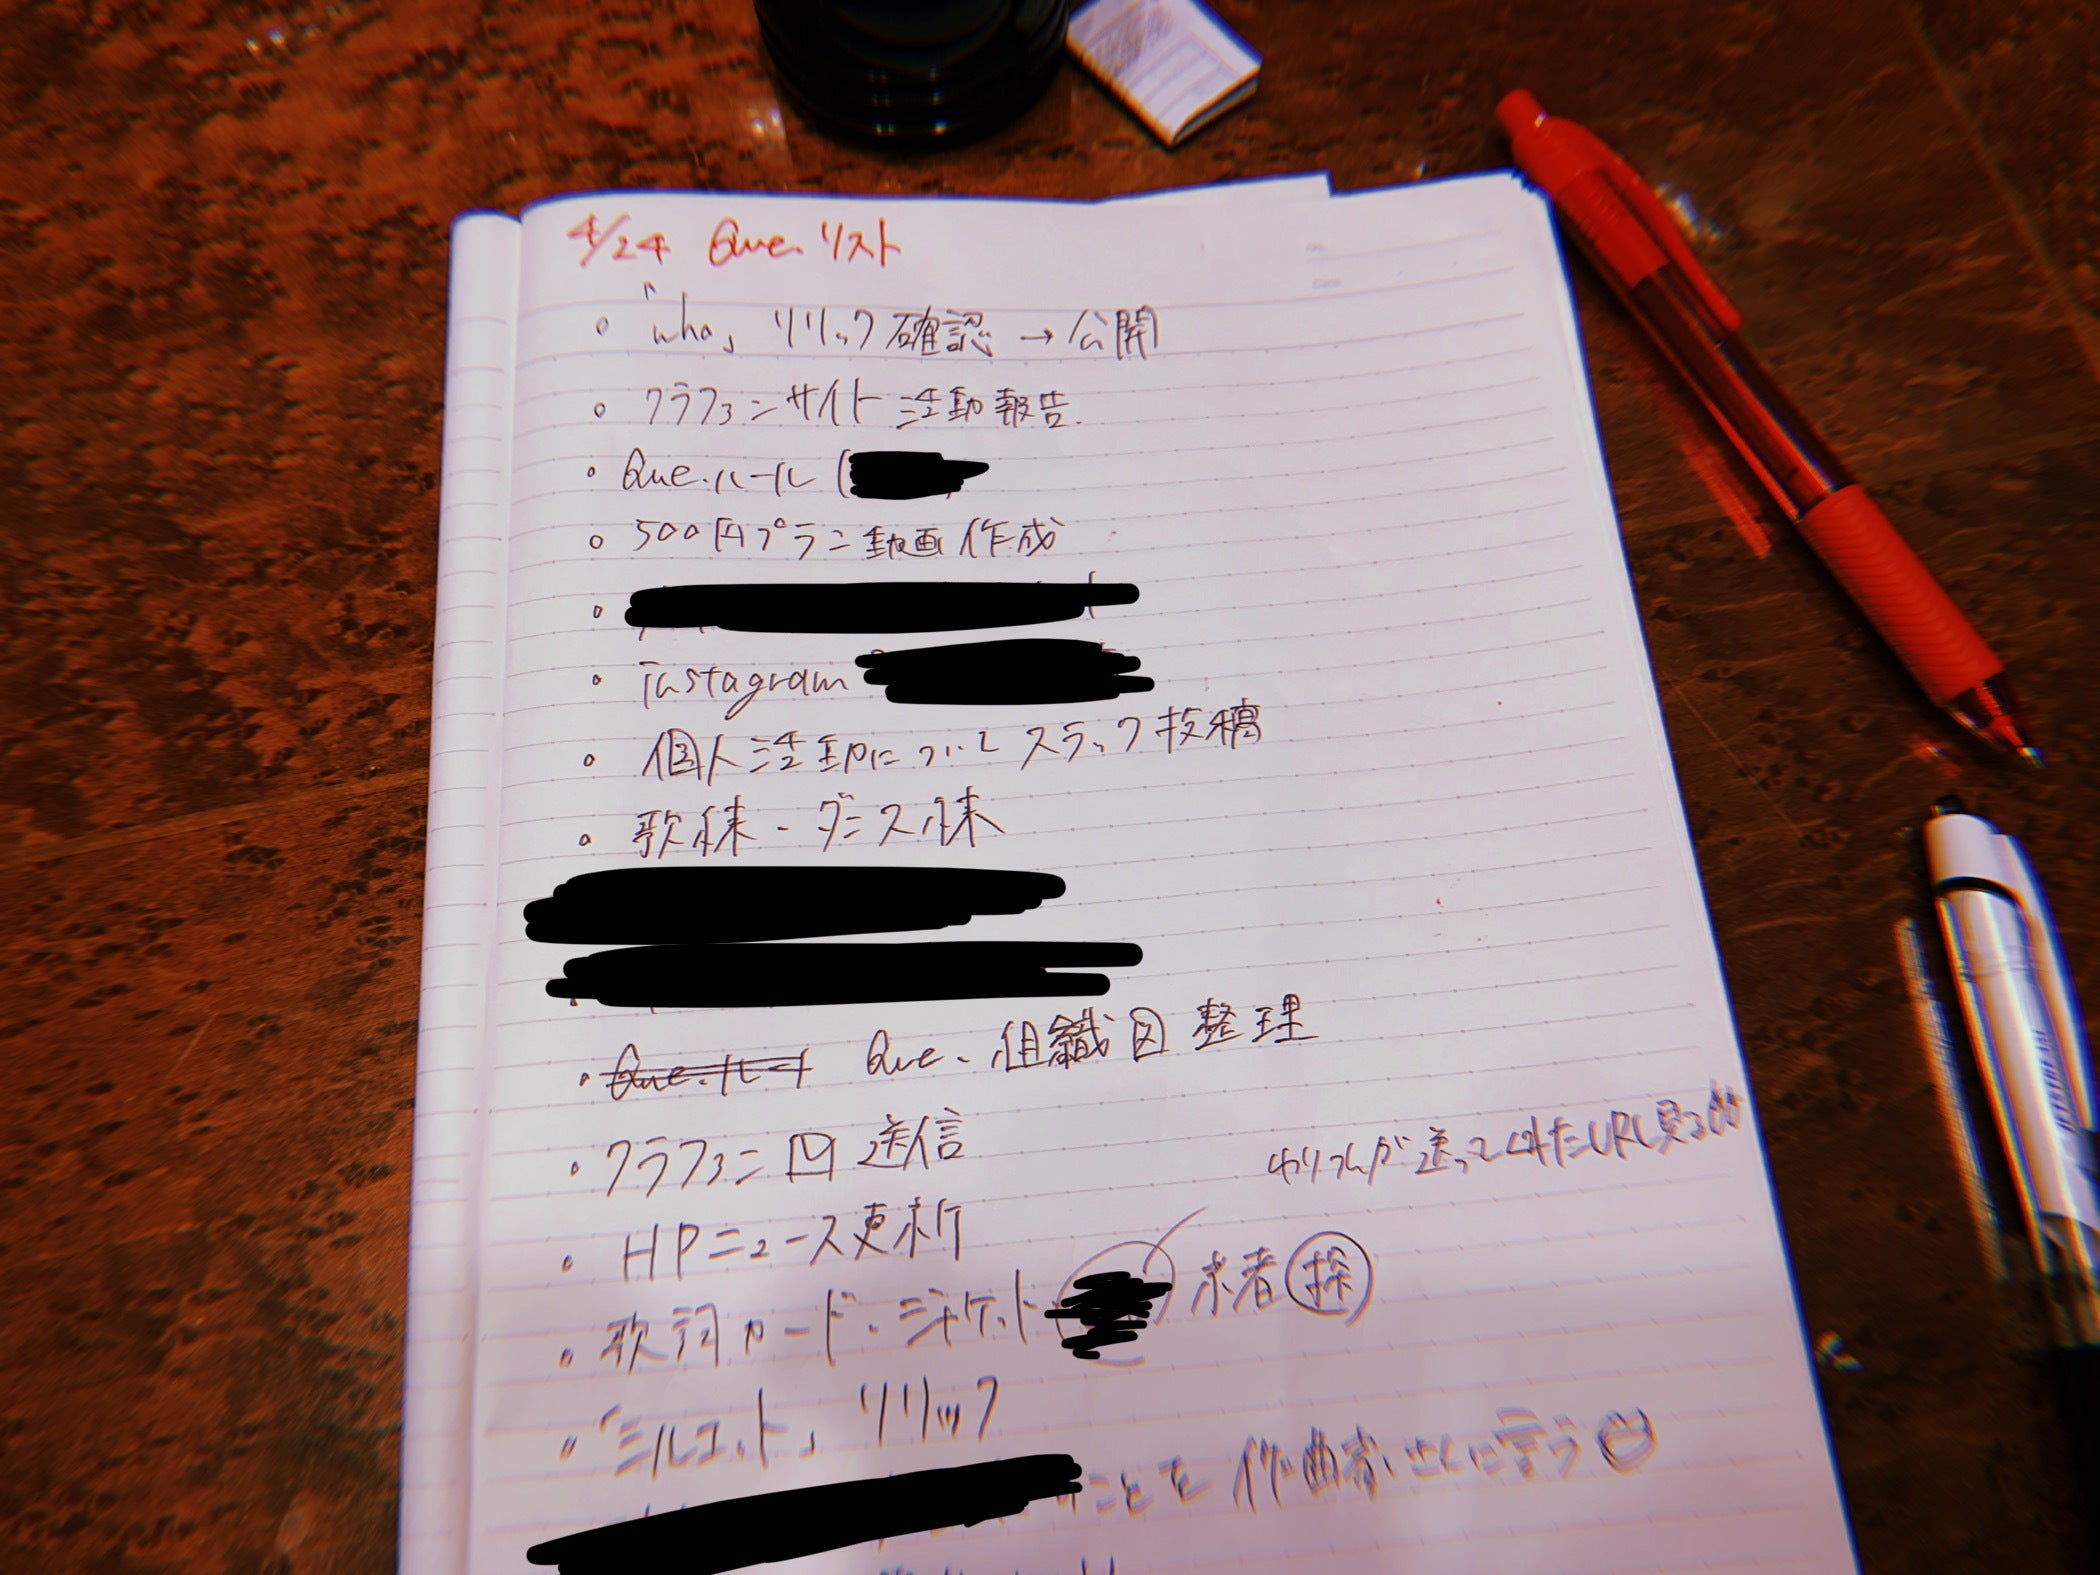 4/24 Que.リスト
・「who」リリック確認→公開
・クラファンサイト活動報告.
・Que.ルール(
・500円プラン動画作成
・instagram
・個人活動についてスラック投稿
・歌練・ダンス練
・Que.ルー Que.組織図整理
・クラファン 送信
が送ってくれたURL見る
・HPニュース更新
・歌詞カード・ジャケット 求者 探
・「シルエット」リリック
ことを作曲者 に言う